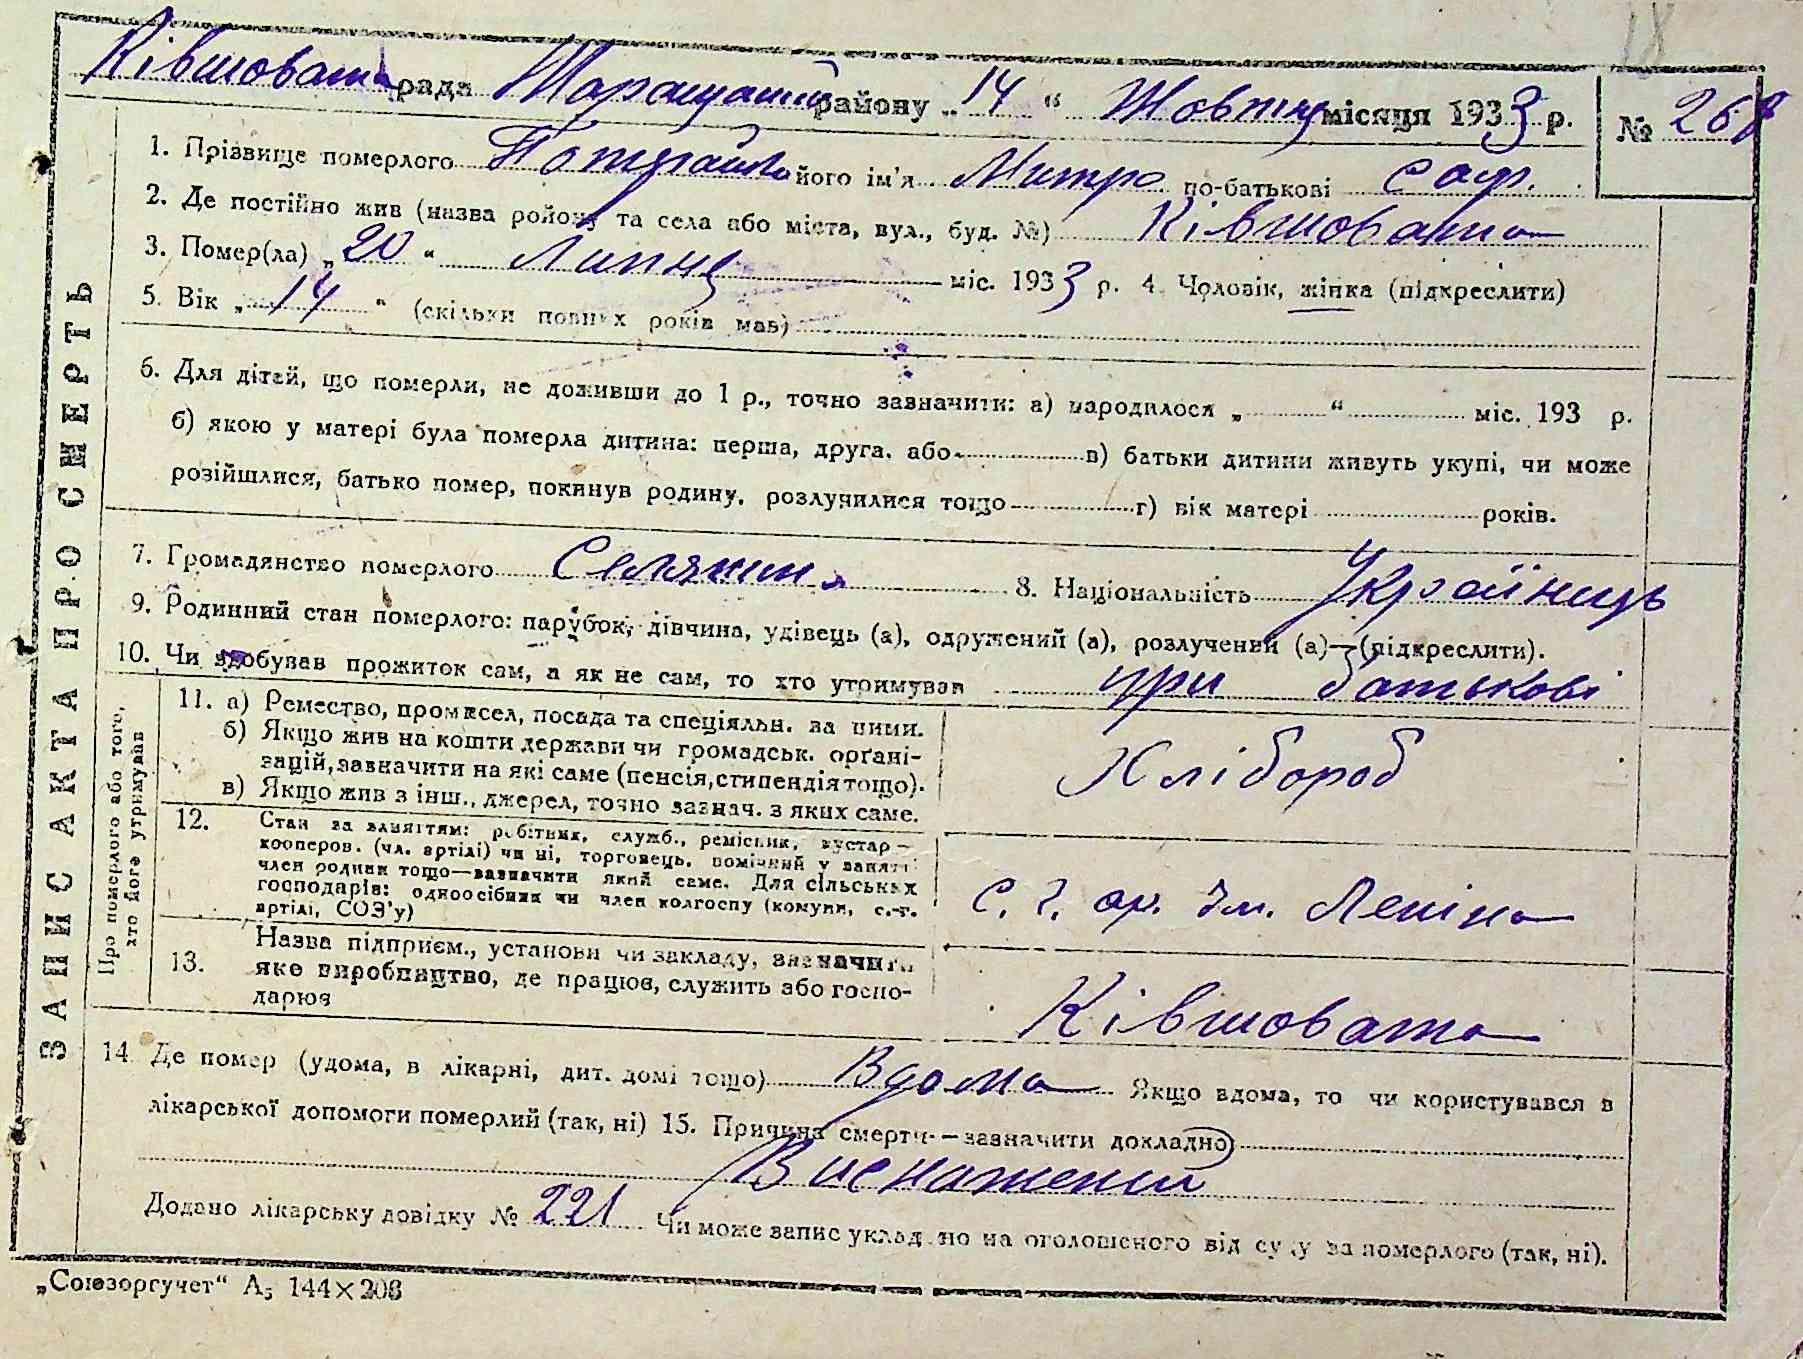 18
Ківшовата рада Таращанськ району „14“ Жовтня місяця 1933 р. № 268
1. Прізвище померлого його ім'я Митро по-батькові Саф.
2. Де постійно жив (назваройону та села або міста, вул., буд. №) Ківшовата
3. Помер(ла) „20“ Липня міс. 1933 р. 4. Чоловік, жінка (підкреслити)
5. Вік „14“ (скільки повних років мав)
6. Для дітей, що померли, не доживши до 1 р., точно зазначити: а) народилося „ “ міс. 193 р.
б) якою у матері була померла дитина: перша, друга, або в) батьки дитини живуть укупі, чи може
розійшлися, батько помер, покинув родину, розлучилися тощо г) вік матері років.
7. Громадянство померлого Селянин 8. Національність Україниць
9. Родинний стан померлого: парубок, дівчина, удівець (а), одружений (а), розлучений (а)—(підкреслити).
10. Чи здобував прожиток сам, а як не сам, то хто утримував при батькові
11. а) Ремество, промисел, посада та спеціяльн. за ними.
б) Якщо жив на кошти держави чи громадськ. орґані-
зацій, зазначити на які саме (пенсія, стипендія тощо).
в) Якщо жив з інш., джерел, точно зазнач. з яких саме.
Хлібороб
12. Стан за заняттям: робітник, служб., ремісник, кустар —
кооперов. (чл. артілі) чи ні, торговець, помічний у занятті
член родини тощо—зазначити який саме. Для сільських
господарів: одноосібник чи член колгоспу (комуни, с.-г.
артілі, СОЗ'у)
С. г. ар. Ім. Леніна
13. Назва підприєм., установи чи закладу, визначити
яке виробництво, де працює, служить або госпо-
дарює
Ківшовата
14. Де помер (удома, в лікарні, дит. домі тощо) Вдома Якщо вдома, то чи користувався в
лікарської допомоги померлий (так, ні) 15. Причина смерти—зазначити докладно
Виснажений
Додано лікарську довідку № 221 Чи може запис укладено на оголошеного від суду за померлого (так, ні).
ЗАПИС АКТА ПРО СМЕРТЬ
Про померлого або того,
хто його утримував
„Союзоргучет“ А5 144×208